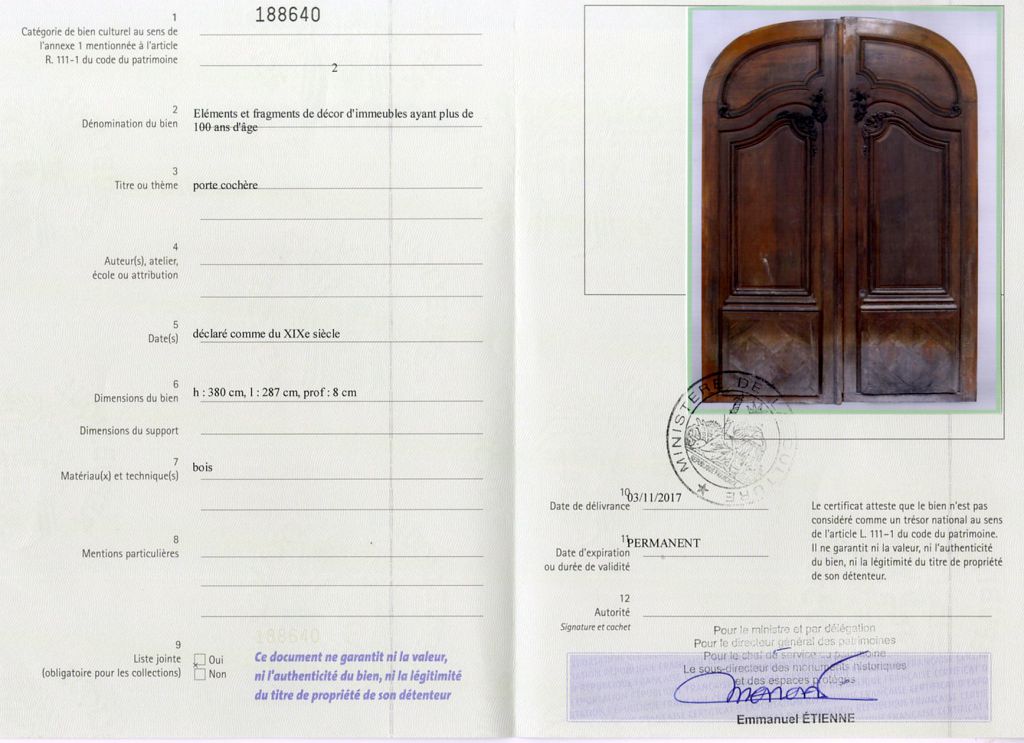 188640
1
Catégorie de bien culturel au sens de
l'annexe 1 mentionnée à l'article
R. 111-1 du code du patrimoine
2
2
Dénomination du bien
Eléments et fragments de décor d'immeubles ayant plus de
100 ans d'âge
3
Titre ou thème
porte cochère
4
Auteur(s), atelier,
école ou attribution
5
Date(s)
déclaré comme du XIXe siècle
6
Dimensions du bien
h : 380 cm, l : 287 cm, prof : 8 cm
Dimensions du support
7
Matériau(x) et technique(s)
bois
8
Mentions particulières
9
Liste jointe
(obligatoire pour les collections)
Oui
Non
188640
Ce document ne garantit ni la valeur,
ni l'authenticité du bien, ni la légitimité
du titre de propriété de son détenteur
MINISTÈRE DE LA CULTURE
10
Date de délivrance
03/11/2017
11
Date d'expiration
ou durée de validité
PERMANENT
Le certificat atteste que le bien n'est pas
considéré comme un trésor national au sens
de l'article L. 111-1 du code du patrimoine.
Il ne garantit ni la valeur, ni l'authenticité
du bien, ni la légitimité du titre de propriété
de son détenteur.
12
Autorité
Signature et cachet
Pour le ministre et par délégation
Pour le directeur général des patrimoines
Pour le chef de service du patrimoine
Le sous-directeur des monuments historiques
et des espaces protégés
Emmanuel ÉTIENNE